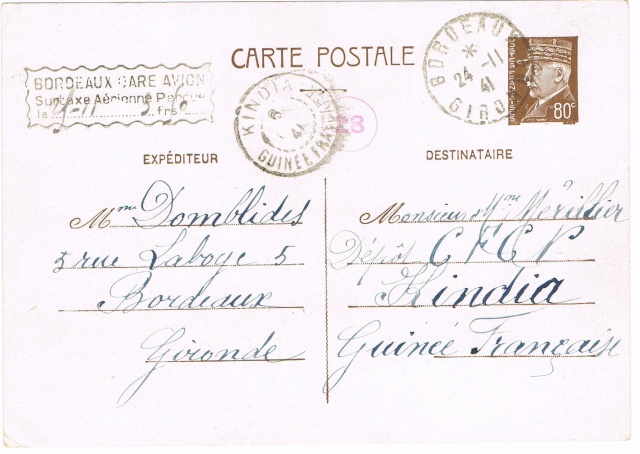 CARTE POSTALE
BORDEAUX GARE AVION
Surtaxe Aérienne Perçue
la frs
KINDIA
6
41
GUINÉE FRANÇAISE
BORDEAUX
24 -11
41
GIRONDE
POSTES FRANÇAISES
80c
EXPÉDITEUR
DESTINATAIRE
Mme Domblides
5 rue Laboye 5
Bordeaux
Gironde
Monsieur Mme Mérillier
Dépôt C F C P
Kindia
Guinée Française